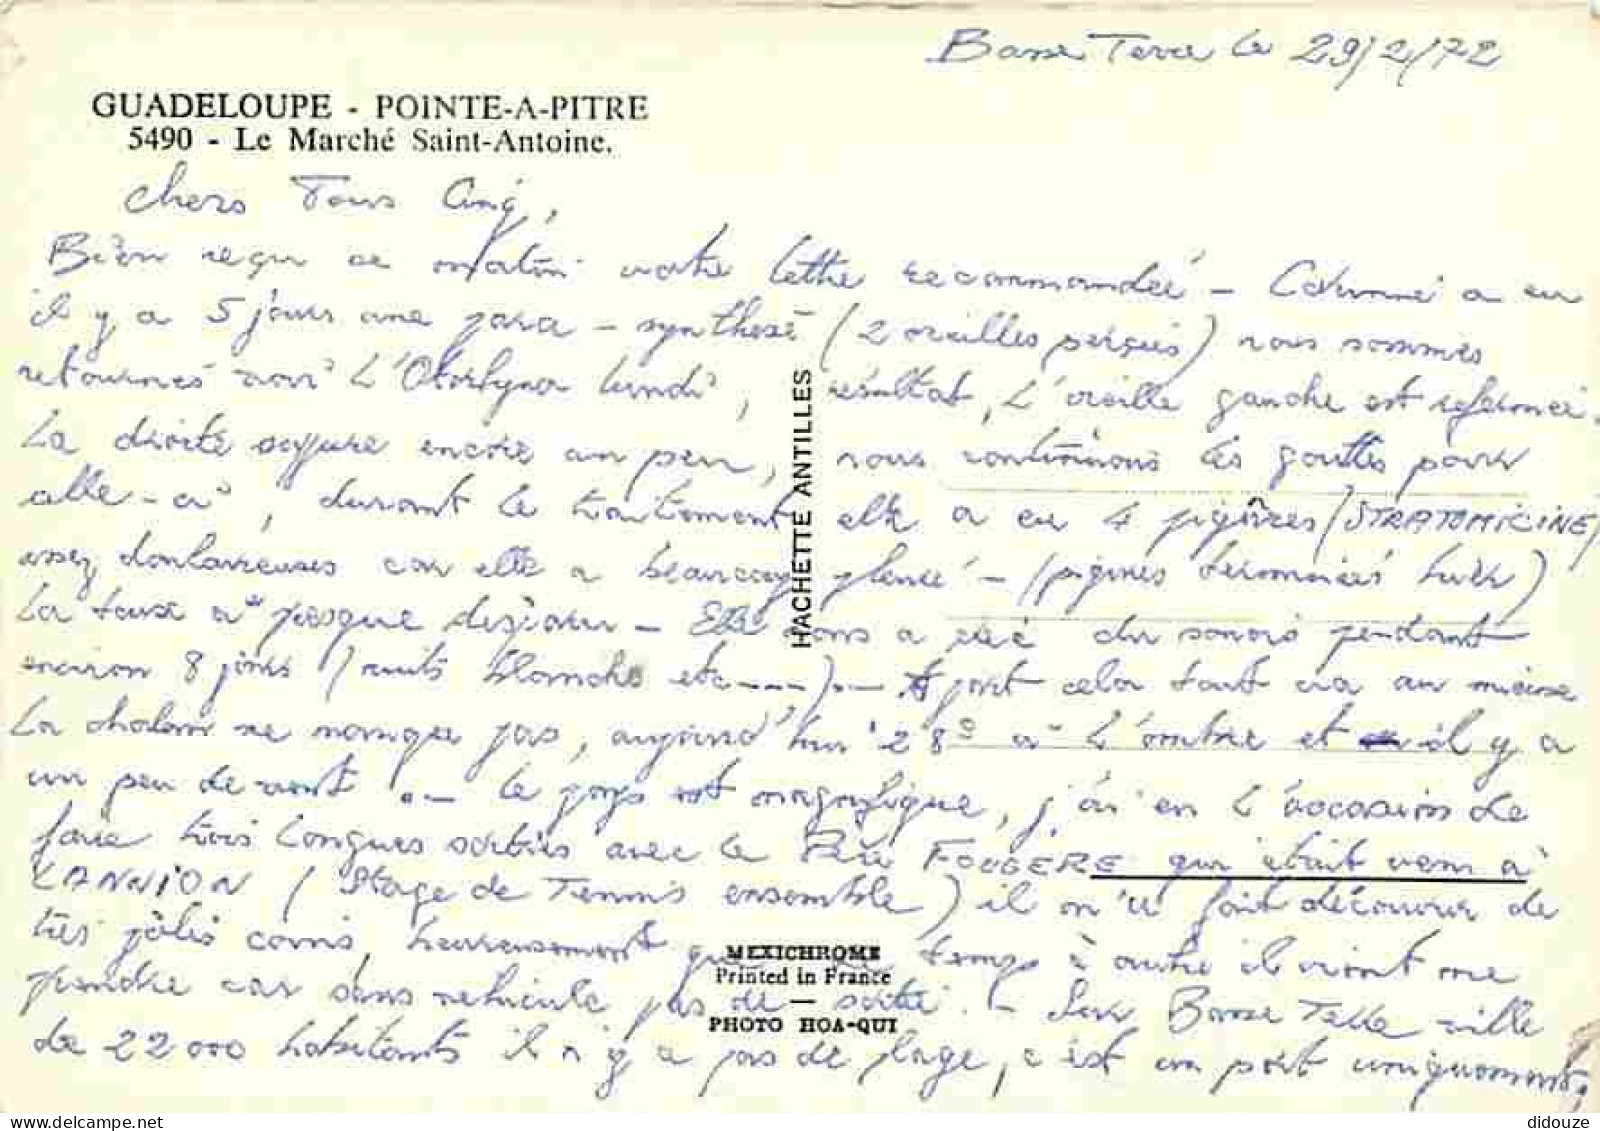 Basse Terre le 29/2/72
GUADELOUPE - POINTE-A-PITRE
5490 - Le Marché Saint-Antoine.
Chers Tous Cinq,
Bien reçu ce matin votre lettre recommandée - a eu
il y a 5 jours une para-synthèse (2 oreilles perçées) nous sommes
retournés voir L'Otorhyno lundi, résultat, L'oreille gauche est refermée.
La droite suppure encore un peu, nous continuons les gouttes pour
celle-ci, durant le traitement elle a eu 4 piqûres (STRATOMICINE)
assez douloureuses car elle a beaucoup pleuré - (piqûres terminées hier)
La toux a presque disparu - Elle nous a du souci pendant
environ 8 jours (nuits blanches etc----).- A part cela tout va au mieux
La chaleur ne manque pas, aujourd'hui 28° à L'ombre et il y a
un peu de vent .- Le pays est magnifique, j'ai eu L'occasion de
faire trois longues sorties avec le Père FOUGERE qui était venu à
LANNION (Stage de Tennis ensemble) il m'a fait découvrir de
très jolis coins, heureusement que de temps à autre il vient me
prendre car sans véhicule pas de sortie. - Sur Basse Terre ville
de 22000 habitants il n'y a pas de plage, c'est un port uniquement,
HACHETTE ANTILLES
MEXICHROME
Printed in France
PHOTO HOA-QUI
delcampe.net
didouze